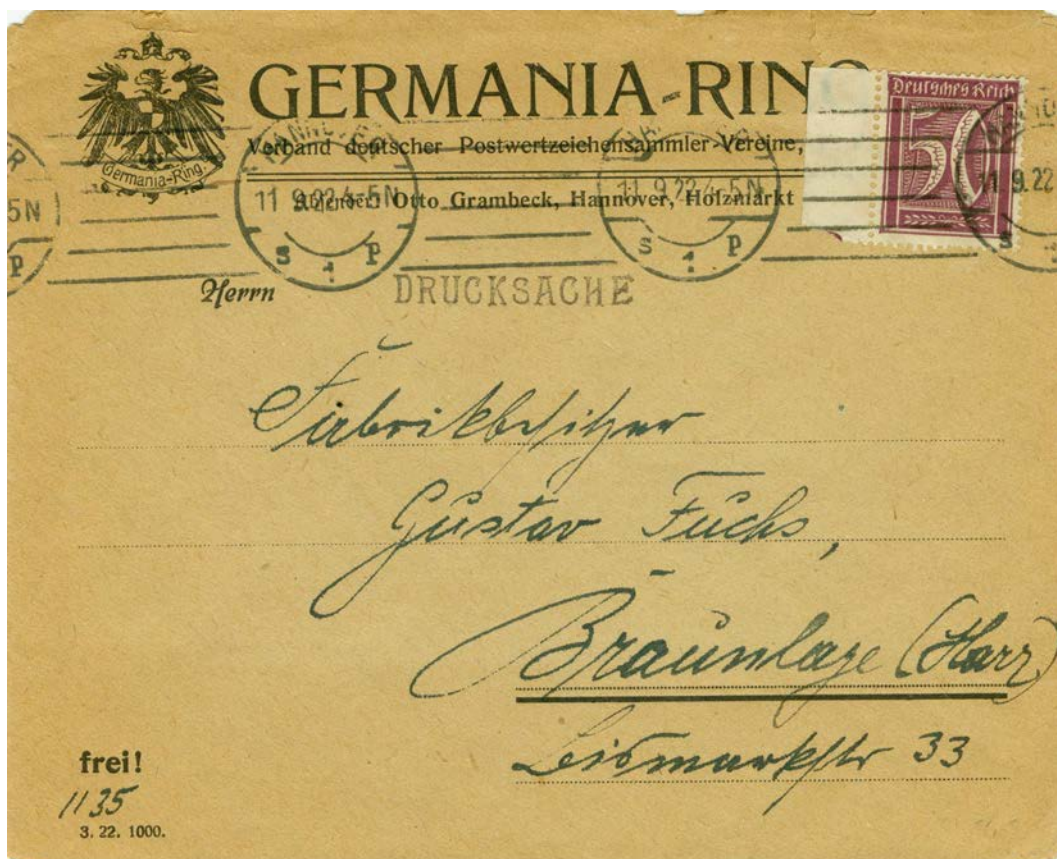 GERMANIA-RING
Verband deutscher Postwertzeichensammler-Vereine,
Germania-Ring.
Absender: Otto Grambeck, Hannover, Holzmarkt
Deutsches Reich
50
HANNOVER
11 9.22 4-5N
s 1 p
HANNOVER
11 9.22 4-5N
s 1 p
11 9.22
s
5N
p
Herrn
DRUCKSACHE
Fabrikbesitzer
Gustav Fuchs,
Braunlage (Harz)
Bismarkstr 33
frei!
1135
3. 22. 1000.